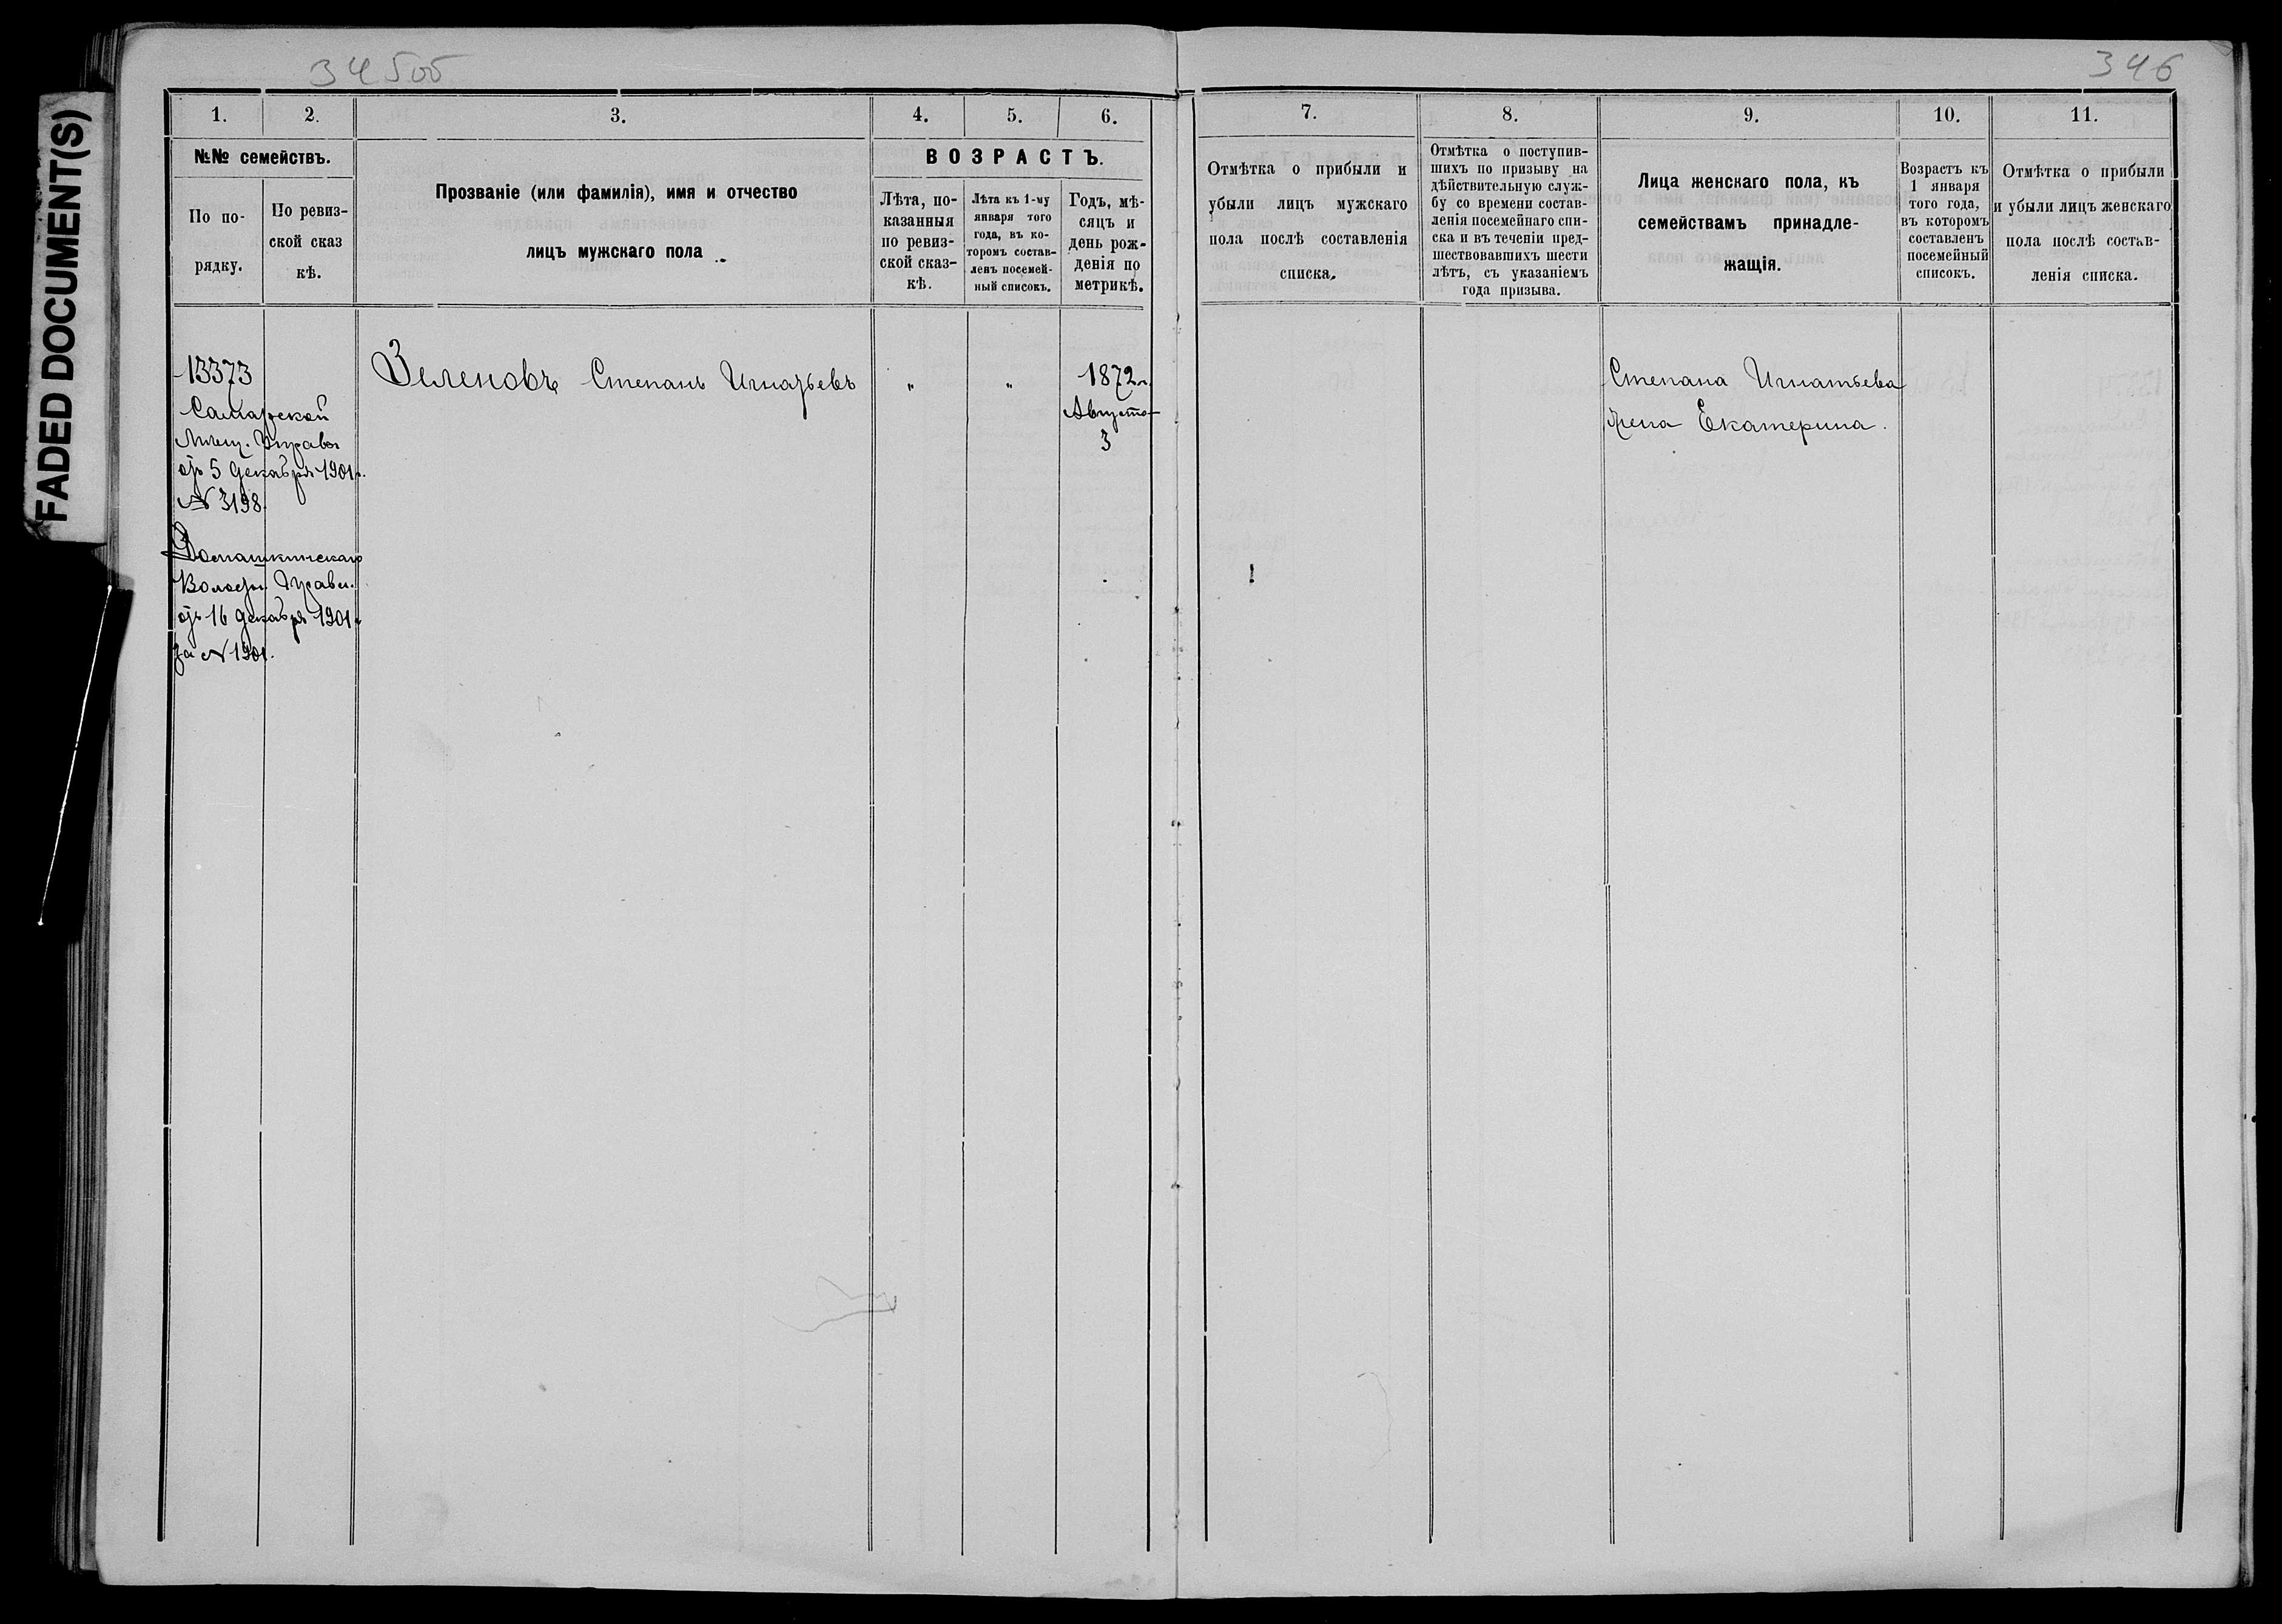 345об
346
FADED DOCUMENT(S)
1. 2. 3. 4. 5. 6.
№№ семействъ.
По по-
рядку.
По ревиз-
ской сказ
кѣ.
Прозваніе (или фамилія), имя и отчество
лицъ мужскаго пола
ВОЗРАСТЪ.
Лѣта, по-
казанныя
по ревиз-
ской сказ-
кѣ.
Лѣта къ 1-му
января того
года, въ ко-
торомъ состав-
ленъ посемей-
ный списокъ.
Годъ, мѣ-
сяцъ и
день рож-
денія по
метрикѣ.
7. 8. 9. 10. 11.
Отмѣтка о прибыли и
убыли лицъ мужскаго
пола послѣ составленія
списка.
Отмѣтка о поступив-
шихъ по призыву на
дѣйствительную служ-
бу со времени состав-
ленія посемейнаго спи-
ска и въ теченіи пред-
шествовавшихъ шести
лѣтъ, съ указаніемъ
года призыва.
Лица женскаго пола, къ
семействамъ принадле-
жащія.
Возрастъ къ
1 января
того года,
въ которомъ
составленъ
посемейный
списокъ.
Отмѣтка о прибыли
и убыли лицъ женскаго
пола послѣ состав-
ленія списка.
13373
Самарской
Мѣщ. Управы
отъ 5 декабря 1901г.
№ 3198.
Домашкинскаго
Волостн. Правл.
отъ 16 декабря 1901г
за № 1901.
Зеленовъ Степанъ Игнатьевъ " "
1872г.
Августа
3
Степана Игнатьева
жена Екатерина.